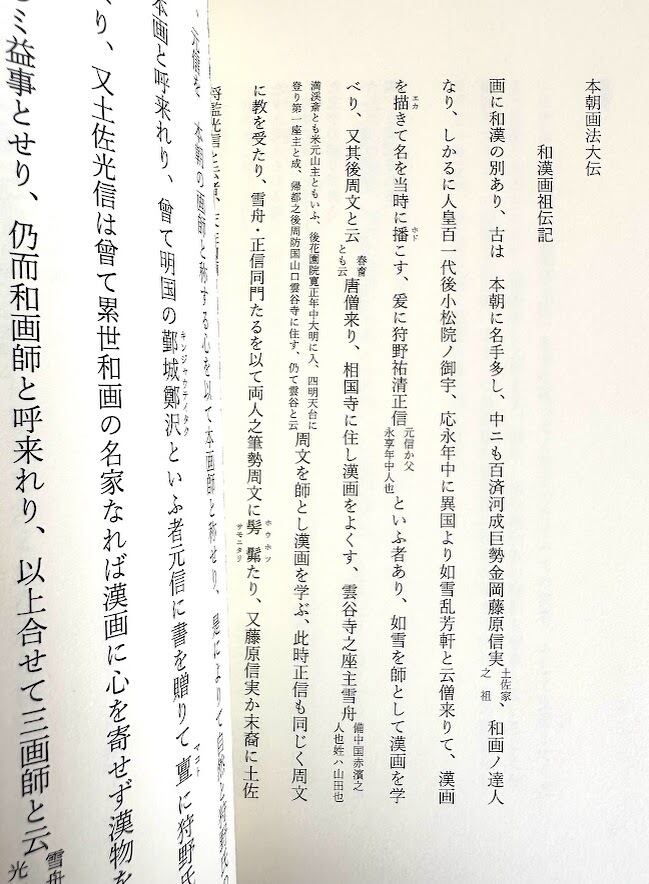 本朝画法大伝
和漢画祖伝記
画に和漢の別あり、古は　本朝に名手多し、中ニも百済河成巨勢金岡藤原信実土佐家之祖、和画ノ達人
なり、しかるに人皇百一代後小松院ノ御宇、応永年中に異国より如雪乱芳軒と云僧来りて、漢画
を描きて名を当時に播こす、爰に狩野祐清正信元信か父永享年中人也といふ者あり、如雪を師として漢画を学
べり、又其後周文と云春育とも云唐僧来り、相国寺に住し漢画をよくす、雲谷寺之座主雪舟備中国赤濱之人也姓ハ山田也
満渓斎とも米元山主ともいふ、後花園院寛正年中大明に入、四明天台に登り第一座主と成、帰都之後周防国山口雲谷寺に住す、仍て雲谷と云周文を師とし漢画を学ぶ、此時正信も同じく周文
に教を受たり、雪舟・正信同門たるを以て両人之筆勢周文に髣髴たり、又藤原信実か末裔に土佐
将監光信と云者
元信を　本朝の画師と称する心を以て本画師と称せり、是によりて
本画と呼来れり、曾て明国の鄞城鄭沢といふ者元信に書を贈りて亶に狩野氏
り、又土佐光信は曾て累世和画の名家なれば漢画に心を寄せず漢物を
ミ益事とせり、仍而和画師と呼来れり、以上合せて三画師と云雪舟光